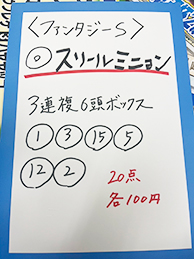 〈ファンタジーS〉
◎ スリールミニョン
3連複 6頭ボックス
① ③ ⑮ ⑤
⑫ ②
20点
各100円